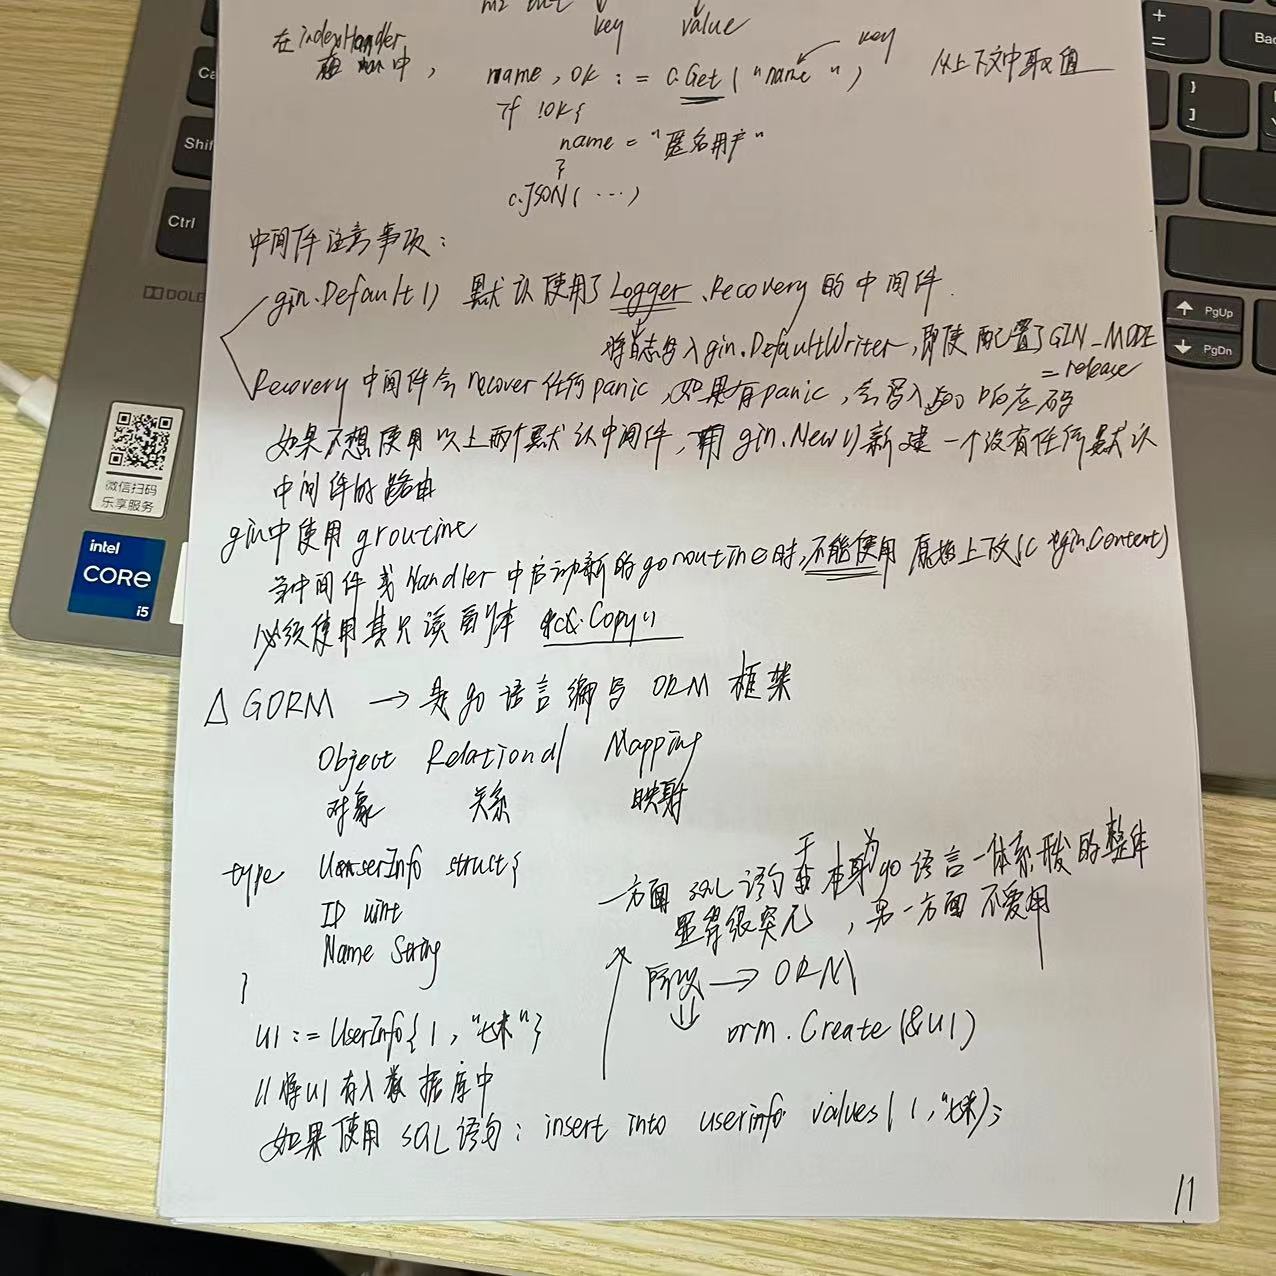 key value
在indexHandler
中,
name, ok := c.Get("name") key 从上下文中取值
if !ok{
name = "匿名用户"
}
c.JSON(...)
中间件注意事项:
gin.Default() 默认使用了Logger、Recovery的中间件.
将日志写入gin.DefaultWriter,即使配置了GIN_MODE
=release
Recovery中间件会recover任何panic,如果有panic,会写入500响应码
如果不想使用以上两个默认中间件,用gin.New()新建一个没有任何默认
中间件的路由
gin中使用groutine
当中间件或Handler中启动新的goroutine时,不能使用原始上下文(c *gin.Context)
必须使用其只读副本 c.Copy()
△ GORM → 是go语言编写ORM框架
Object Relational Mapping
对象 关系 映射
type UserInfo struct{
ID uint
Name String
}
一方面 SQL语句 于本身为go语言一体系形成的整体
显得很突兀,另一方面不爱用
所以 → ORM
orm.Create(&u1)
u1 := UserInfo{1, "七米"}
//将u1存入数据库中
如果使用SQL语句: insert into userinfo values(1,"七米);
11
Ctrl
PgUp
PgDn
微信扫码
乐享服务
intel
CORE
i5